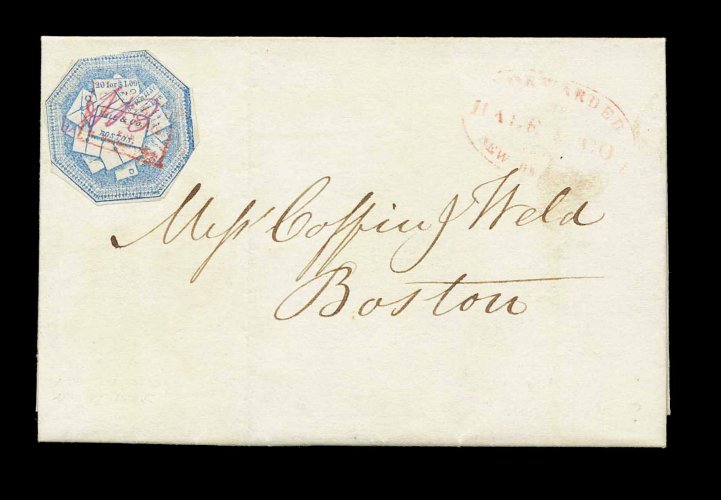 20 for $1.00
HALE & CO.
BOSTON.
FORWARDED
HALE & CO
NEW BEDFORD
Messrs Coffin & Weld
Boston